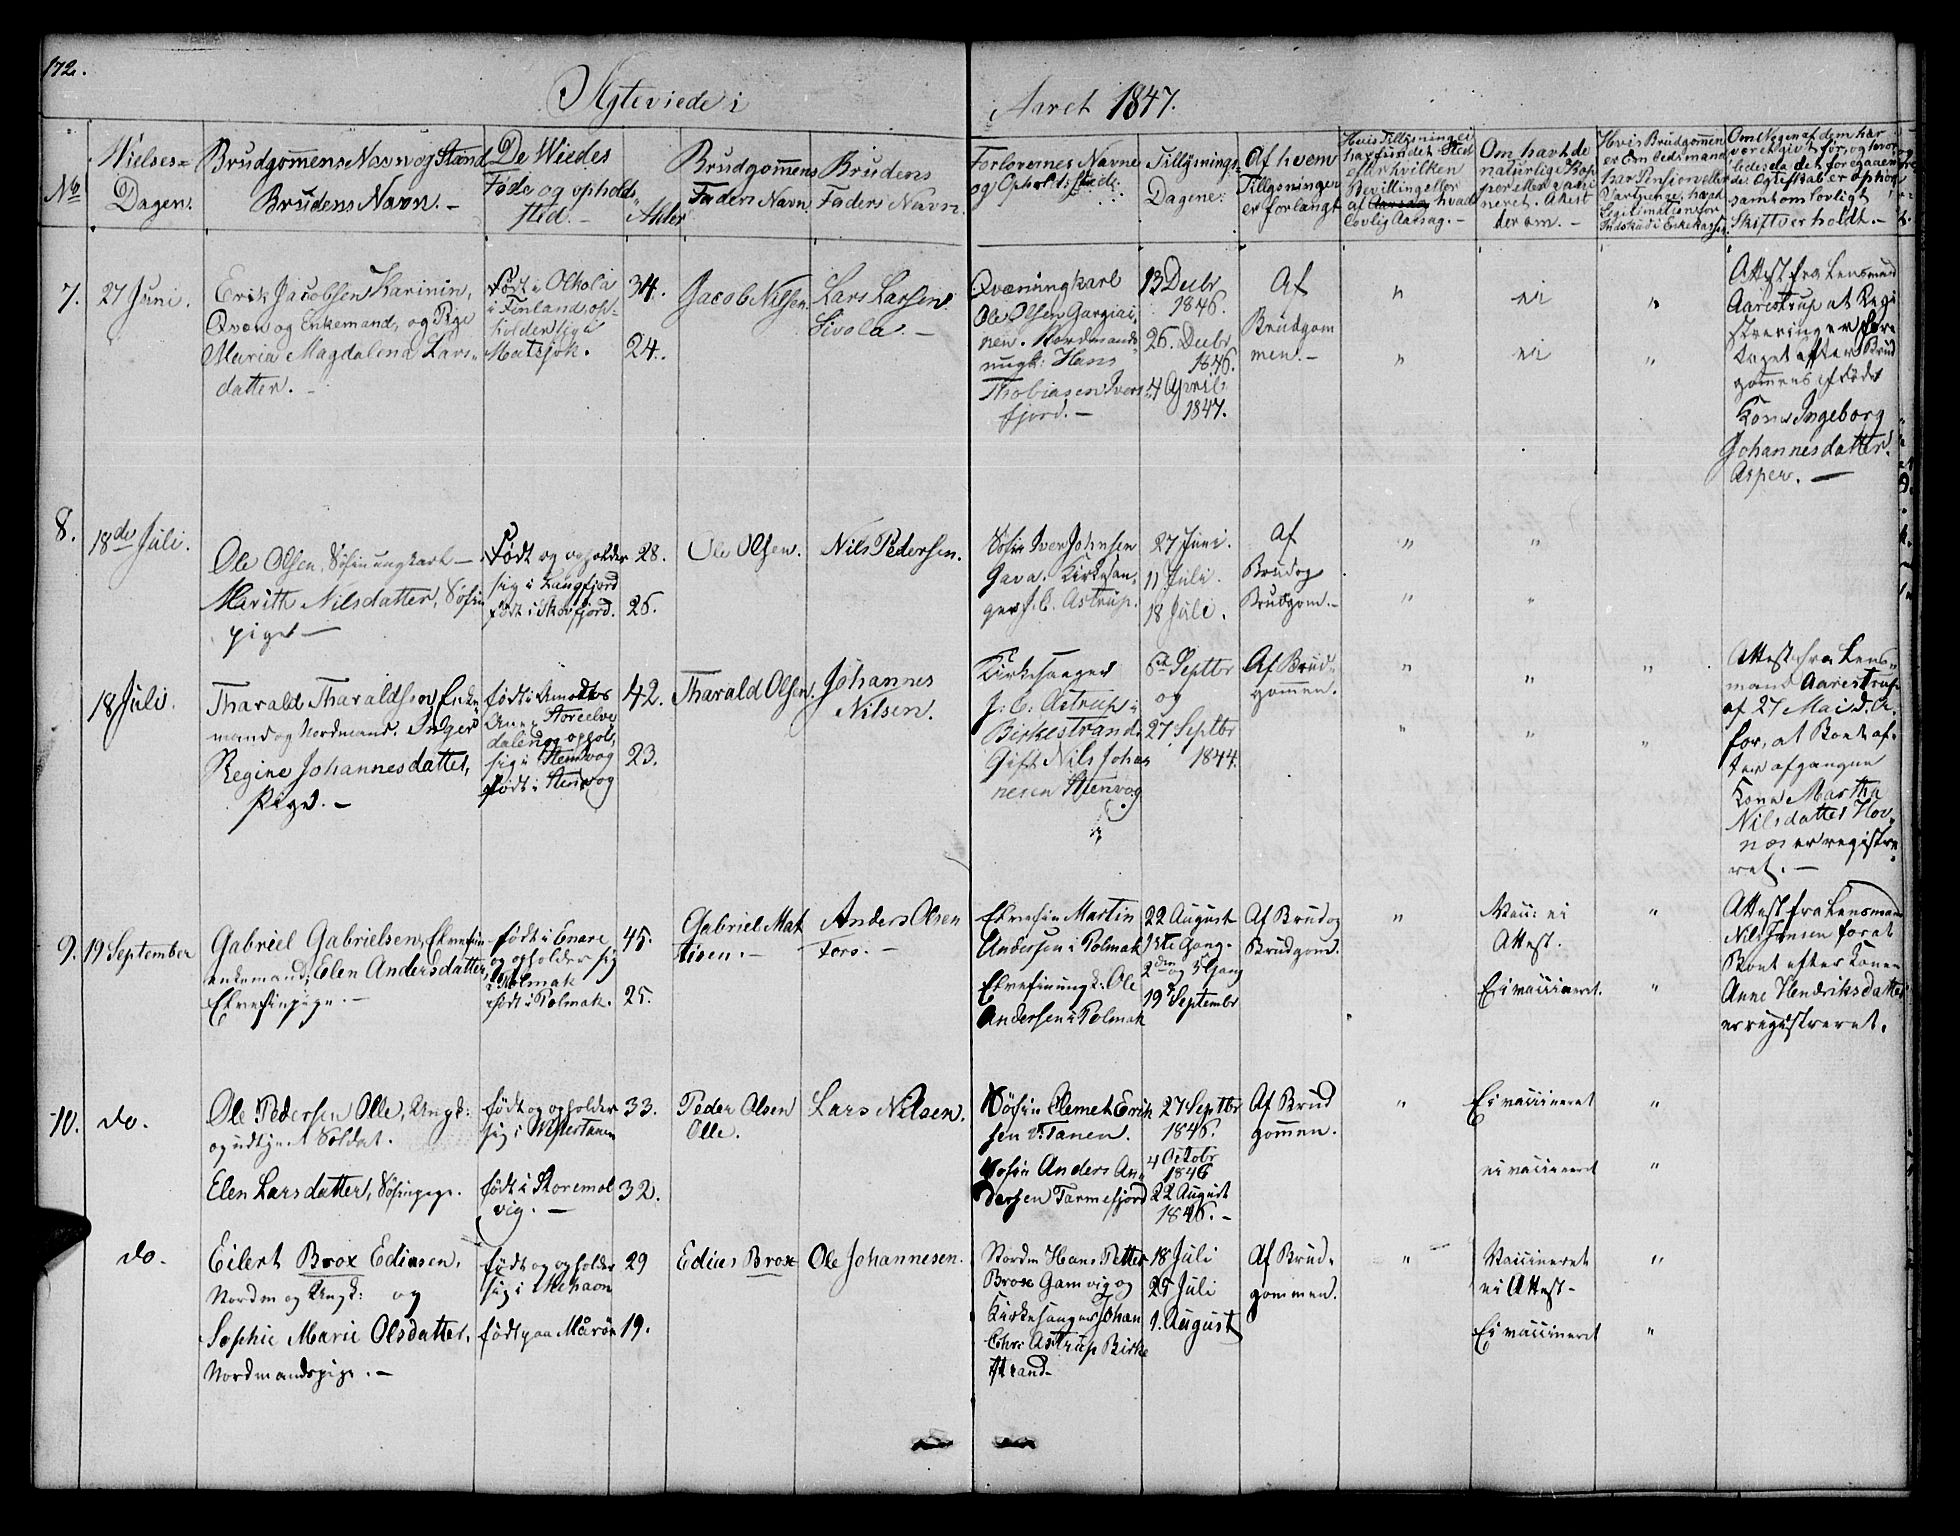 172.
Ægteviede i
Aaret 1847.
No
Vielses-
Dagen.
Brudgommens Navn og Stand
Brudens Navn. -
De Viedes
Føde og opholds
sted. -
Alder
Brudgommens
Faders Navn.
Brudens
Faders Navn.
Forlovernes Navne
og Opholdssted.
Tillysnings-
Dagene.
Af hvem
Tillysningen
er forlangt
Hvis Tillysning ei
har fundet Sted
efter hvilken
Bevilling eller
af hvad
lovlig Aarsag. -
Om havt de
naturlige Kop
per eller vacci
neret. Attest
derom. -
Hvis Brudgommen
er Om bedsmand
har Pension eller
Vartpenge, hvad
Legitimation for
Indskud i Enkekassen.
Om Nogen af dem har
været givt før, og hvor
ledes da det foregaaen
de Ægteskab er ophørt
samt om lovligt
Skifte er holdt. -
7.
27 Juni.
Erik Jacobsen Karinin,
Qvæn og Enkemand, og Pige
Maria Magdalena Lars-
datter. -
Født i Olkola
i Finland, op-
holder sig i
Matsjok.
34.
24.
Jacob Nilsen.
Lars Larsen
Sivola -
Qvæningkarl
Ole Olsen Gargiai,
nen. Nordmands
ungk: Hans
Thobiasen Ivers
fjord. -
13 Decbr
1846.
26. Decbr
1846.
4 April
1847.
Af
Brudgom
men. -
"
"
ei
ei
"
"
Attest fra Lensmand
Aarestrup at Regi
streringen fore
taget efter Brud
gommens afdøde
Kone Ingeborg
Johannesdatter.
Asper. -
8.
18de Juli.
Ole Olsen, Søfinungkarl -
Marith Nilsdatter, Søfin
pige -
Født og opholder
sig i Langfjord
født i Skovfjord.
28.
26.
Ole Olsen.
Nils Pedersen.
Søfin Iver Johnsen
Gava. Kirkesan-
ger J. C. Astrup.
27 Juni.
11 Juli.
18 Juli.
Af
Brudog
Brudgom. -
"
"
"
"
18 Juli.
Tharald Tharaldsen Enke
mand og Nordmand. Inger
Regine Johannesdatter,
Pige. -
født i
Storelve
dalen og ophol,
sig i Stenvog
født i Stenvog
42.
23.
Tharald Olsen.
Johannes
Nilsen.
Kirkesanger
J. C. Astrup i
Birkestrand.
Gift Nils Johan
nesen Stenvog
6te Septbr
og
27 Septbr
1844.
Af Brud-
gommen.
"
"
"
"
"
"
Attest fra Lens-
mand Aarestrup
af 27 Mai d. A.
for, at Boet af-
ter afgangne
Kone Martha
Nilsdatter Hov-
næs er registre
ret. -
9.
19 September
Gabriel Gabrielsen, Elvefin
enkemand, Elen Andersdatter,
Elvefinpige. -
født i Enare
og opholder sig
i Polmak
født i Polmak.
45.
25.
Gabriel Mat
tisen. -
Anders Olsen
Fors. -
Elvefin Martin
Andersen i Polmak
Elvefinungk: Ole
Andersen i Polmak
22 August
1ste Gang.
2den og 3 Gang
19de Septembr
Af Brudog
Brudgom.
"
Vacc: ei
Attest.
Ei vaccineret.
"
"
Attest fra Lensmand
Nils Jensen for at
Boet efter Konen
Anne Hendriksdatter
er registreret.
10.
do.
Ole Pedersen Olle, Ungk:
og udtjent Soldat.
Elen Larsdatter, Søfinpige.
født og opholder
sig i Vestertanen
født i Storemol
vig. -
33.
32.
Peder Olsen
Olle.
Lars Nilsen.
Søfin Clemet Erik
sen V. Tanen.
Søfin Anders An-
dersen Tarmefjord
27 Septbr
1846.
4 Octobr
1846
22 August
1846. -
Af Brud
gommen.
"
Ei vaccineret
ei vaccineret
"
"
do.
Eilert Brox Ediasen,
Nordm og Ungk: og
Sophie Marie Olsdatter,
Nordmandspige. -
født og opholder
sig i Mehavn
født paa Mårøn
29
19.
Edias Brox
Ole Johannesen.
Nordm Hans Petter
Brox Gamvig og
Kirkesanger Johan
Chr. Astrup Birke
strand
18 Juli
25 Juli
1. August
Af Brud-
gommen.
"
Vaccineret
ei Attest -
Ei vaccineret
"
"